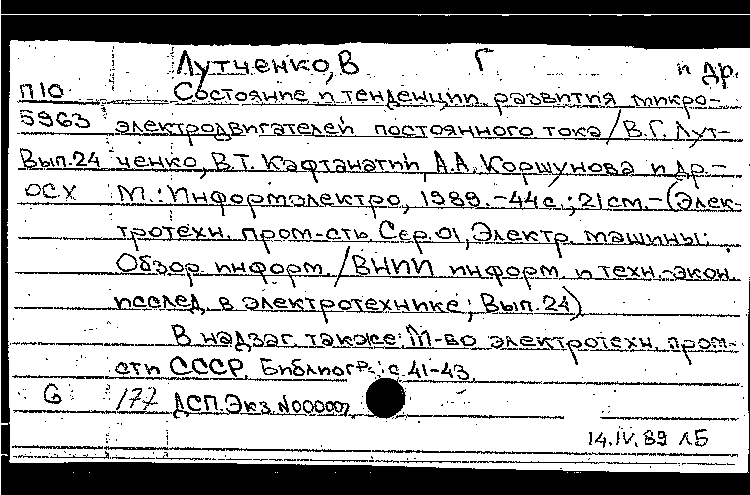 Лутченко, В Г и др.
П10 Состояние и тенденции развития микро-
5963 электродвигателей постоянного тока / В.Г. Лут-
Вып.24 ченко, В.Т. Кафтанатий, А.А. Коршунова и др. –
ОСХ М.: Информэлектро, 1989. – 44 с.; 21 см. – (Элек-
тротехн. пром-сть. Сер. 01, Электр. машины:
Обзор. информ. / ВНИИ информ. и техн.-экон.
исслед. в электротехнике; Вып. 24)
В надзаг. также: М-во электротехн. пром-
сти СССР. Библиогр.: с. 41-43.
G 177 ДСП. Экз. N000007
14.IV.89 ЛБ